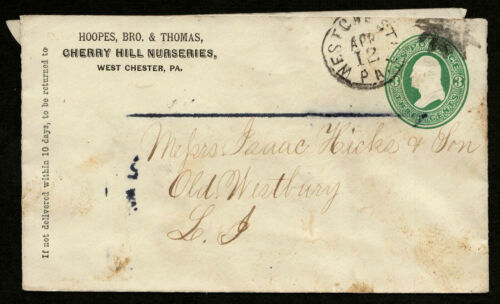 HOOPES, BRO. & THOMAS,
CHERRY HILL NURSERIES,
WEST CHESTER, PA.
If not delivered within 10 days, to be returned to
WESTCHEST
APR
12
PA
Messrs Isaac Hicks & Son
Old Westbury
L. I